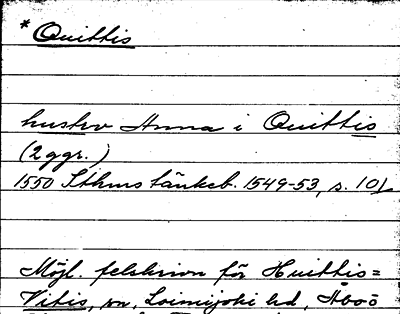 * Quittis
hustrv Anna i Quittis
(2 ggr.)
1550 Sthms tänkeb. 1549-53, s. 101
Möjl. felskrivn för Huittis=
Vitis, sn, Loimijoki hd, Åbo ö